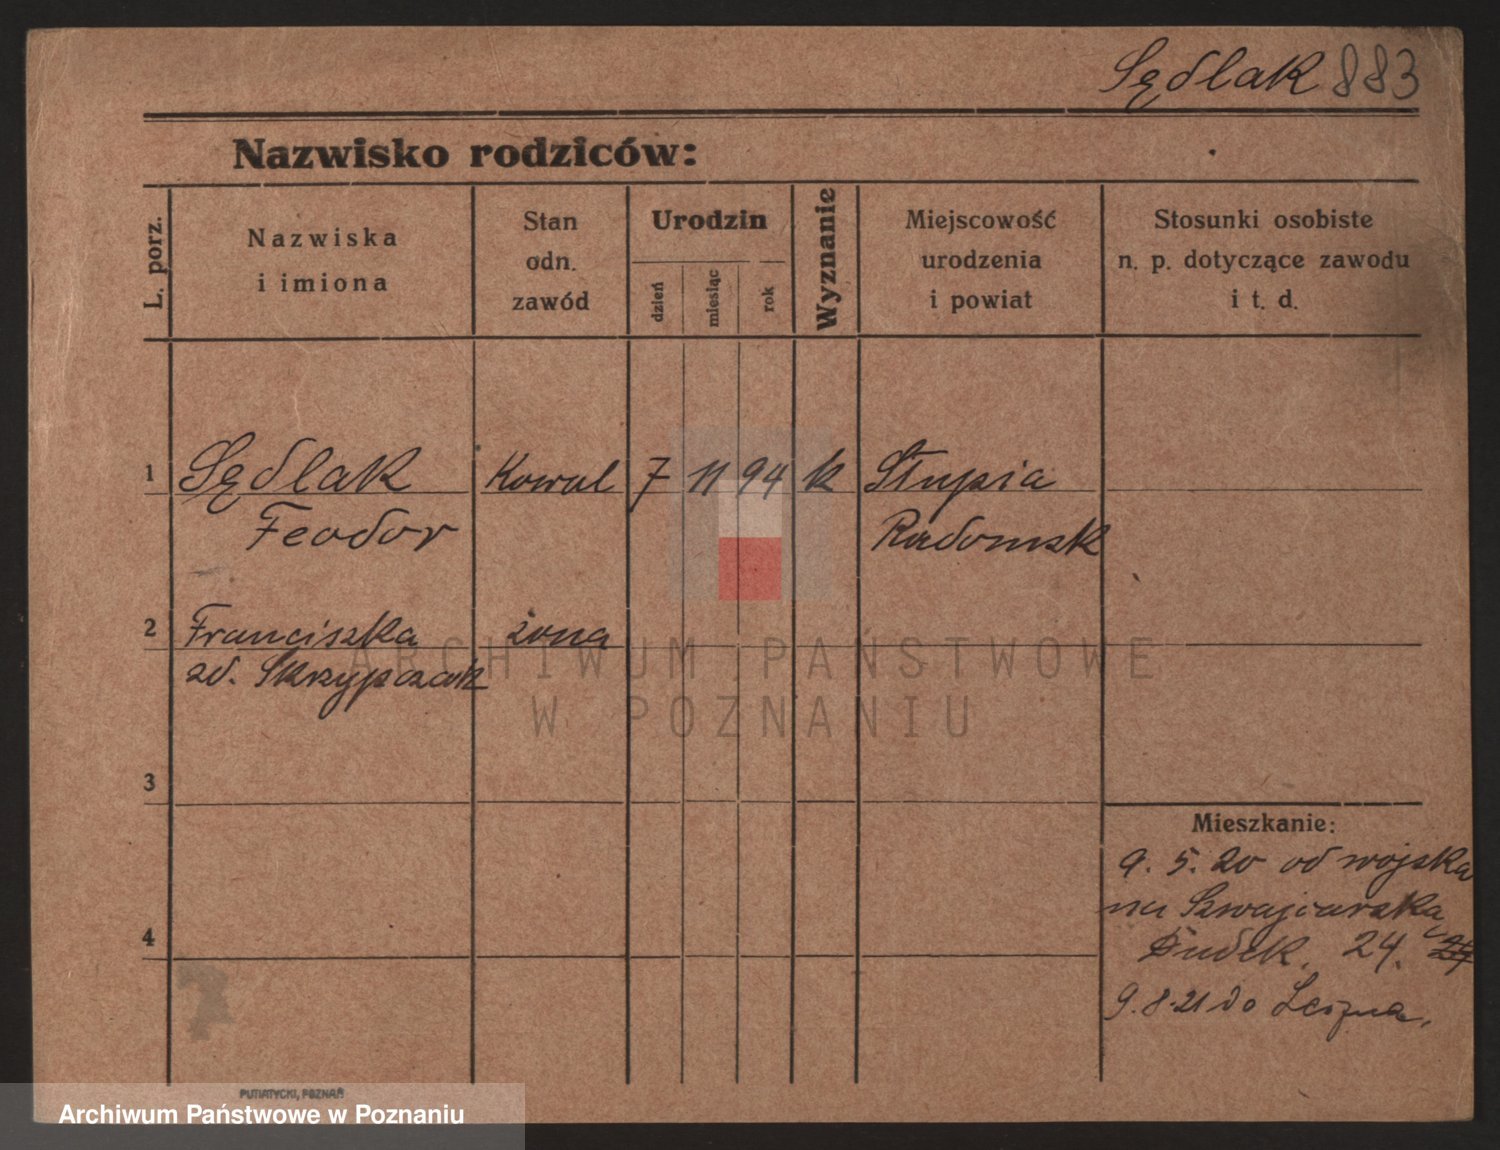 Sędlak 883
Nazwisko rodziców:
L. porz.
Nazwiska
i imiona
Stan
odn.
zawód
Urodzin
dzień
miesiąc
rok
Wyznanie
Miejscowość
urodzenia
i powiat
Stosunki osobiste
n. p. dotyczące zawodu
i t. d.
1 Sędlak Kowal 7 11 94 k Słupia
Feodor Radomsk
2 Franciszka żona
zd. Skrzypczak
ARCHIWUM PAŃSTWOWE
W POZNANIU
3
Mieszkanie:
9. 5. 20 od wojska
na Szwajcarska
4
Dudek. 24.
9. 8. 21 do
PUTIATYCKI, POZNAŃ
Archiwum Państwowe w Poznaniu